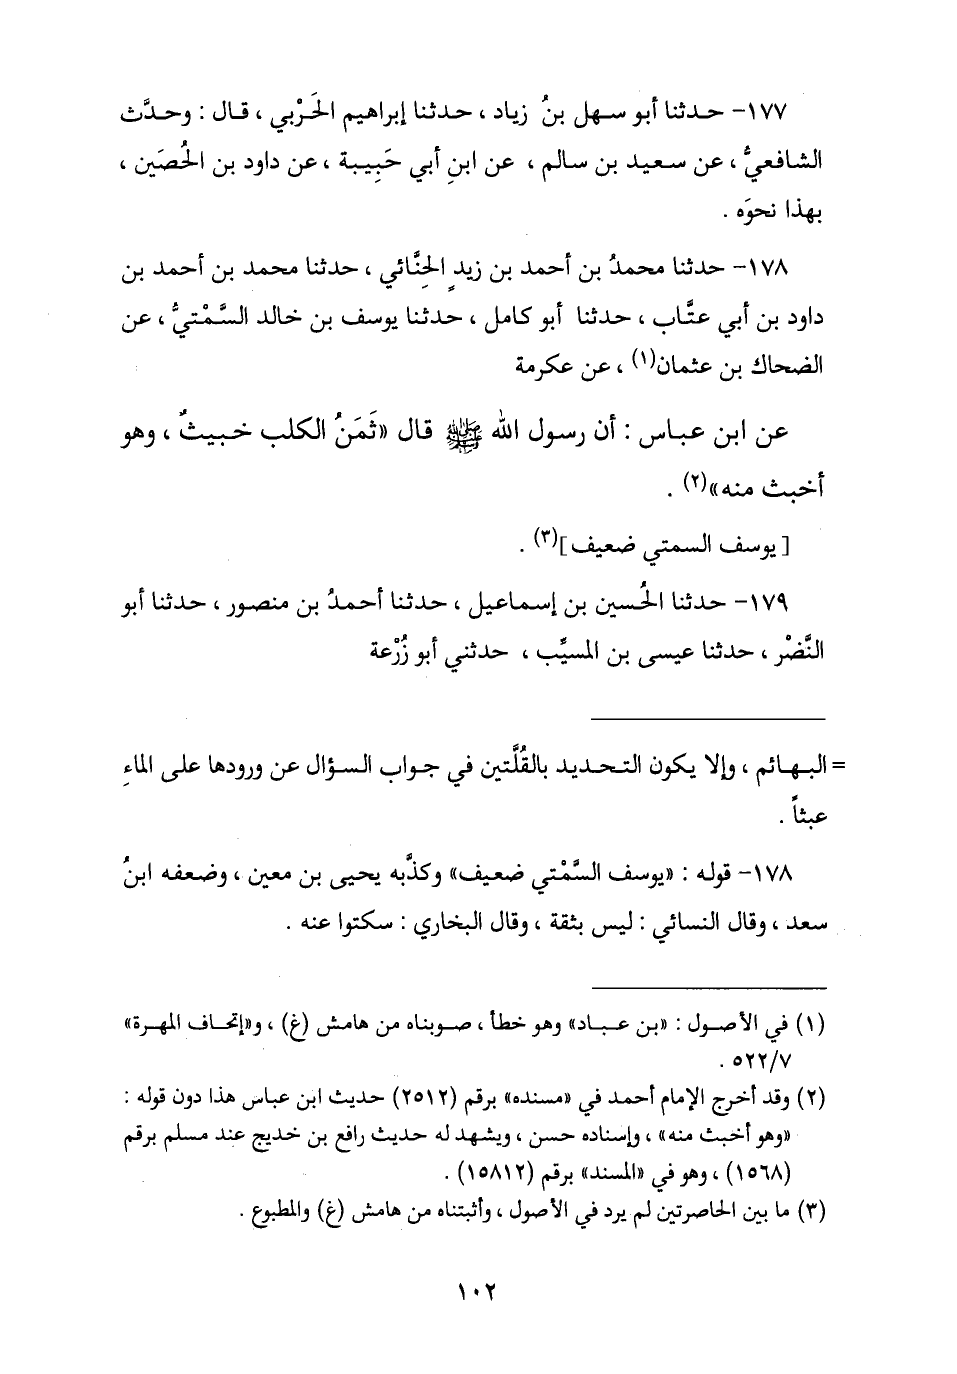 ١٧٧- حـدثنا أبو سـهل بنُ زياد ، حـدثنا إبراهيم الحَرْبي ، قـال : وحـدَّث
الشافعيُّ ، عن سـعيد بن سالم ، عن ابنِ أبي حَبِيبة ، عن داود بن الحُصَين ،
بهذا نحوَه .
١٧٨- حدثنا محمدُ بن أحمد بن زيدٍ الحِنَّائي ، حدثنا محمد بن أحمد بن
داود بن أبي عتَّاب ، حدثنا أبو كامل ، حدثنا يوسف بن خالد السَّمْتيُّ ، عن
الضحاك بن عثمان(١) ، عن عكرمة
عن ابن عبـاس : أن رسول الله ﷺ قال «ثَمَنُ الكلب خـبيثٌ ، وهو
أخبث منه»(٢) .
[يوسف السمتي ضعيف](٣) .
١٧٩- حدثنا الحُسين بن إسماعيل ، حدثنا أحمدُ بن منصور ، حدثنا أبو
النَّضْر ، حدثنا عيسى بن المسيِّب ، حدثني أبو زُرْعة
= البهائم ، وإلا يكون التحديد بالقُلَّتين في جواب السؤال عن ورودها على الماءِ
عبثاً .
١٧٨- قوله : «يوسف السَّمْتي ضعيف» وكذَّبه يحيى بن معين ، وضعفه ابنُ
سعد ، وقال النسائي : ليس بثقة ، وقال البخاري : سكتوا عنه .
(١) في الأصول : «بن عباد» وهو خطأ ، صوبناه من هامش (غ) ، و«إتحاف المهرة»
٥٢٢/٧ .
(٢) وقد أخرج الإمام أحمد في «مسنده» برقم (٢٥١٢) حديث ابن عباس هذا دون قوله :
«وهو أخبث منه» ، وإسناده حسن ، ويشهد له حديث رافع بن خديج عند مسلم برقم
(١٥٦٨) ، وهو في «المسند» برقم (١٥٨١٢) .
(٣) ما بين الحاصرتين لم يرد في الأصول ، وأثبتناه من هامش (غ) والمطبوع .
١٠٢